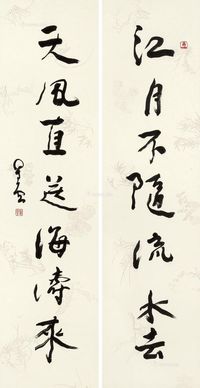 江月不隨流水去
天風直送海濤來